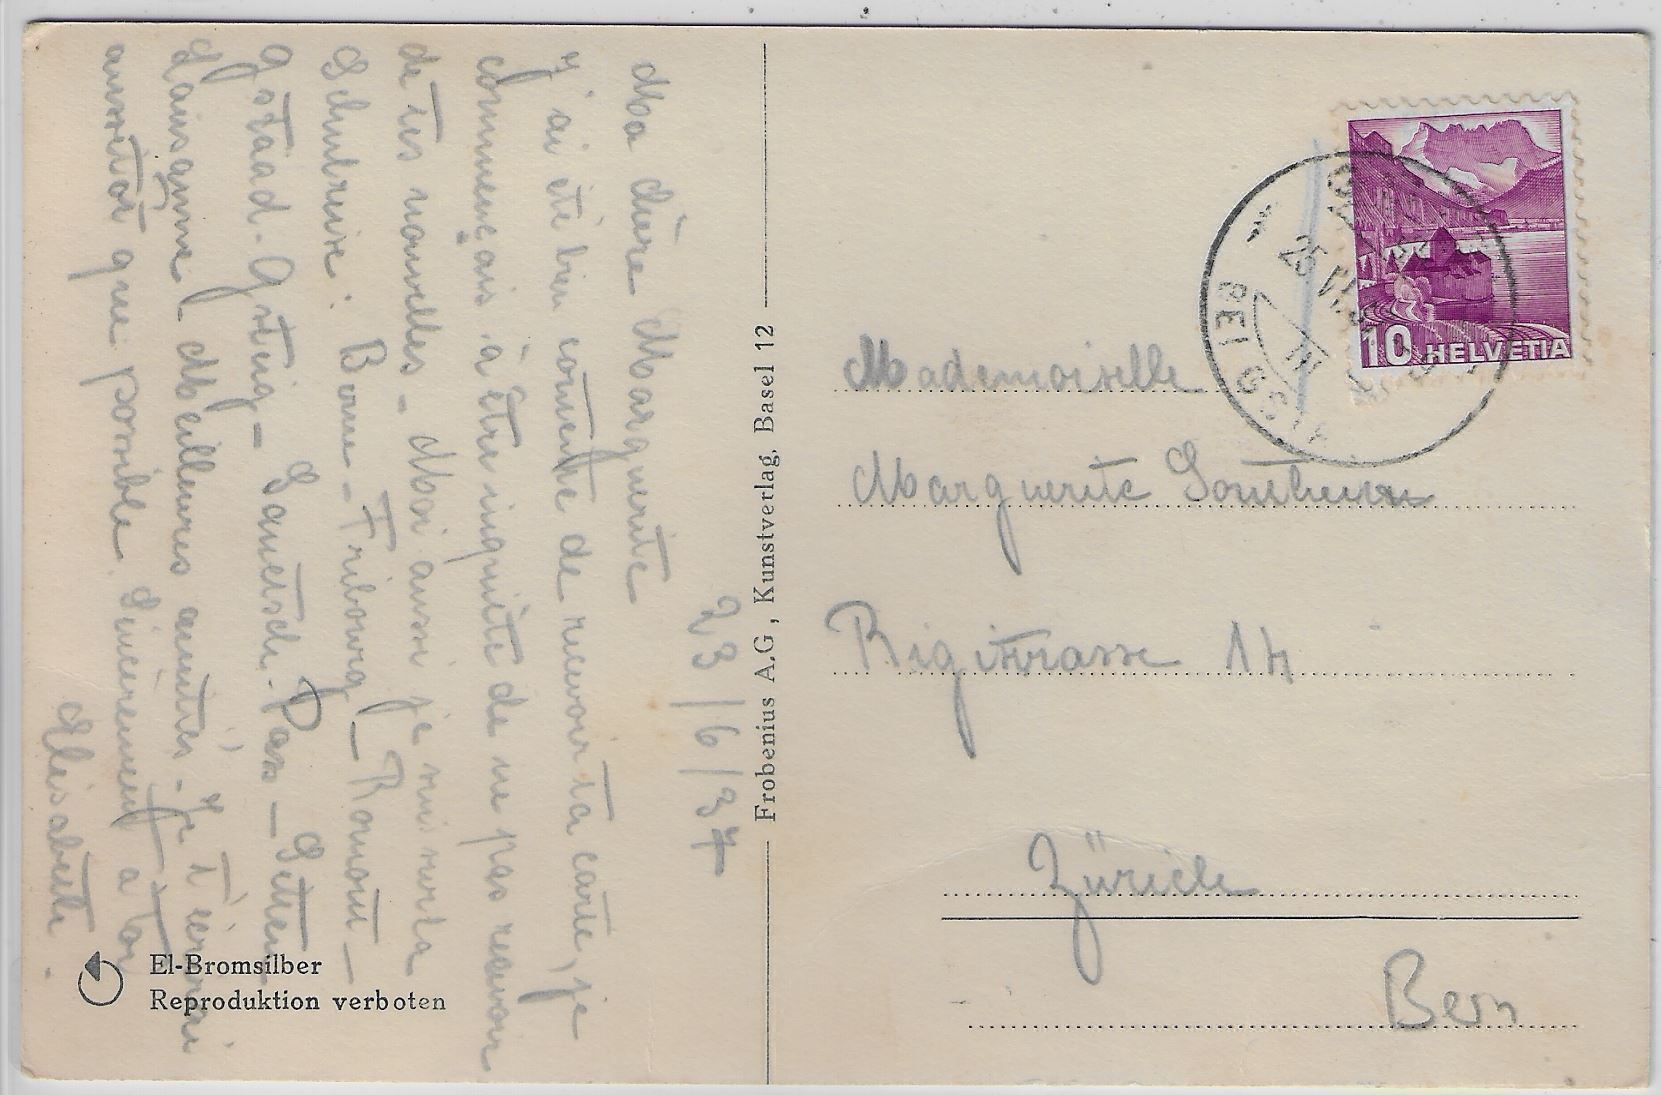 23/6/37
Ma chère Marguerite
J'ai été bien contente de recevoir ta carte, je
commençais à être inquiète de ne pas recevoir
de tes nouvelles - Moi aussi je suis
Schulreise: Berne - Fribourg - Romont -
Gstaad. Gsteig - Sanetsch-Pass - Sitten
Lausanne Meilleures amitiés - Je t'écrirai
aussitôt que possible. Sincèrement a toi
Elisabeth.
Frobenius A.G., Kunstverlag, Basel 12
El-Bromsilber
Reproduktion verboten
10 HELVETIA
25 VI 37
BEI GSTA
Mademoiselle
Marguerite
Rigistrasse 14
Zürich
Bern